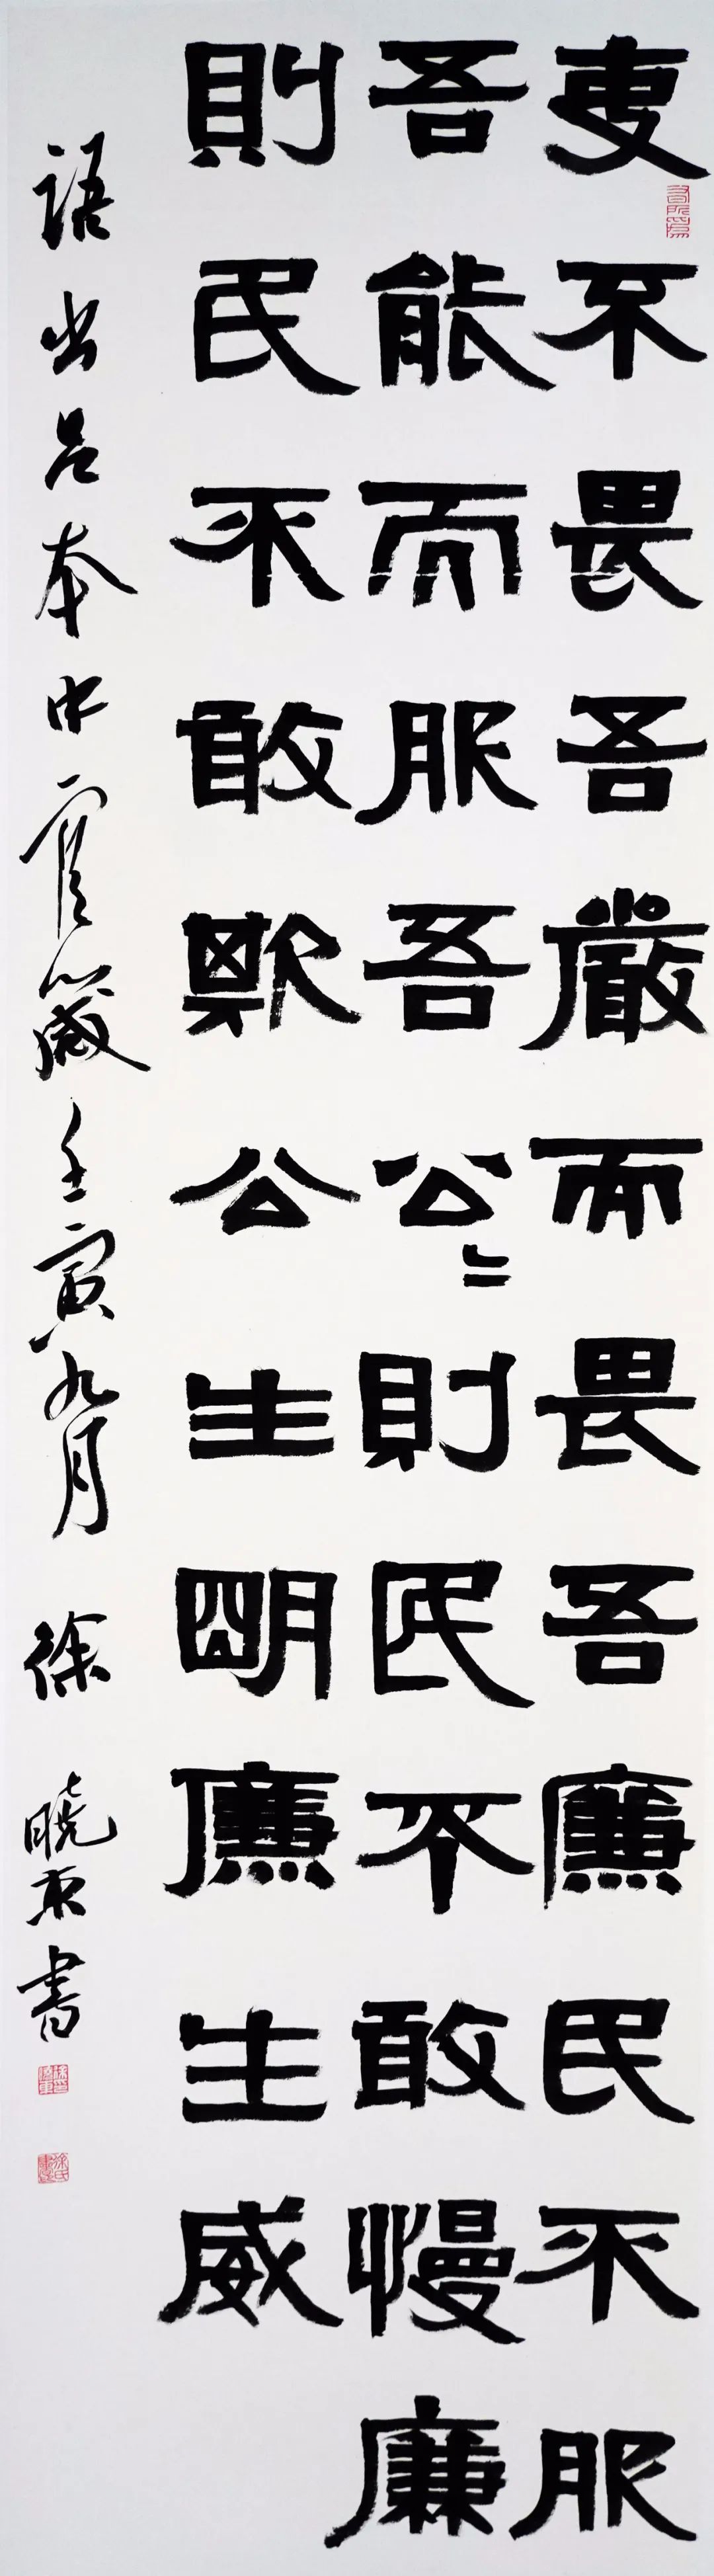 吏不畏吾嚴而畏吾廉民不服
吾能而服吾公〻則民不敢慢廉
則民不敢欺公生朙廉生威
語出呂本中官箴壬寅九月 徐曉东書